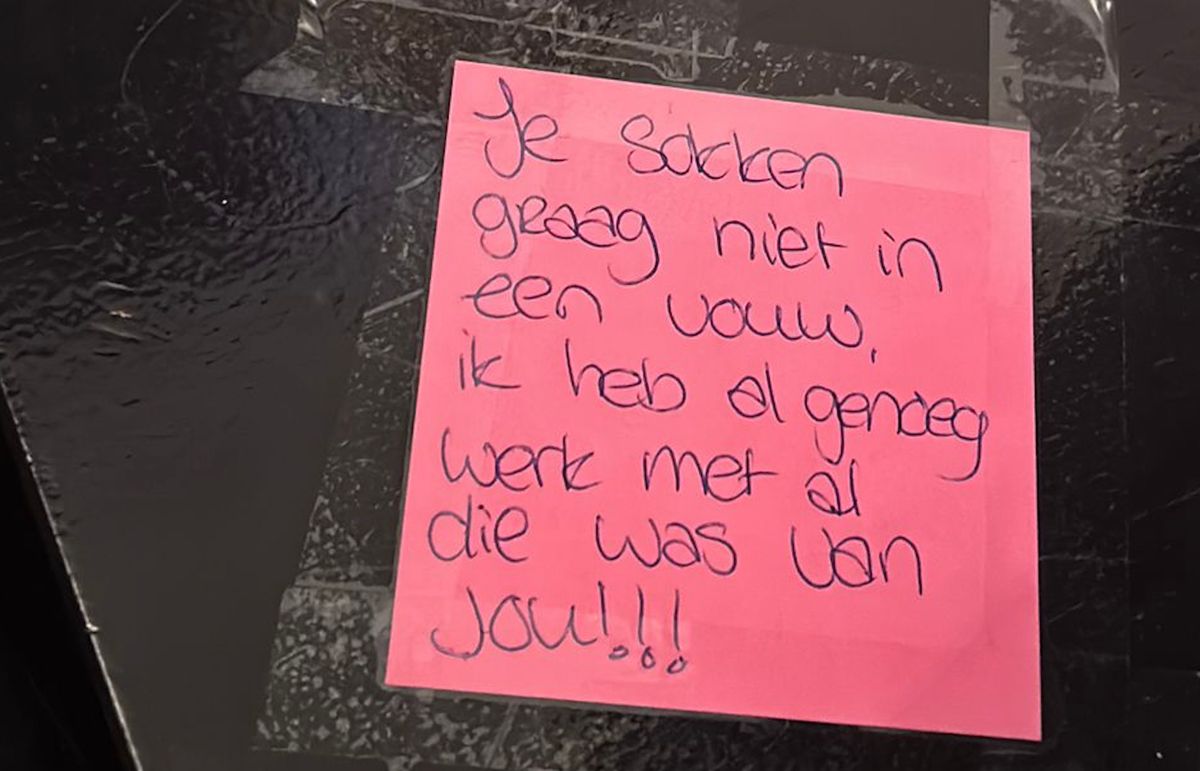 Je sokken
graag niet in
een vouw,
ik heb al genoeg
werk met al
die was van
jou!!!